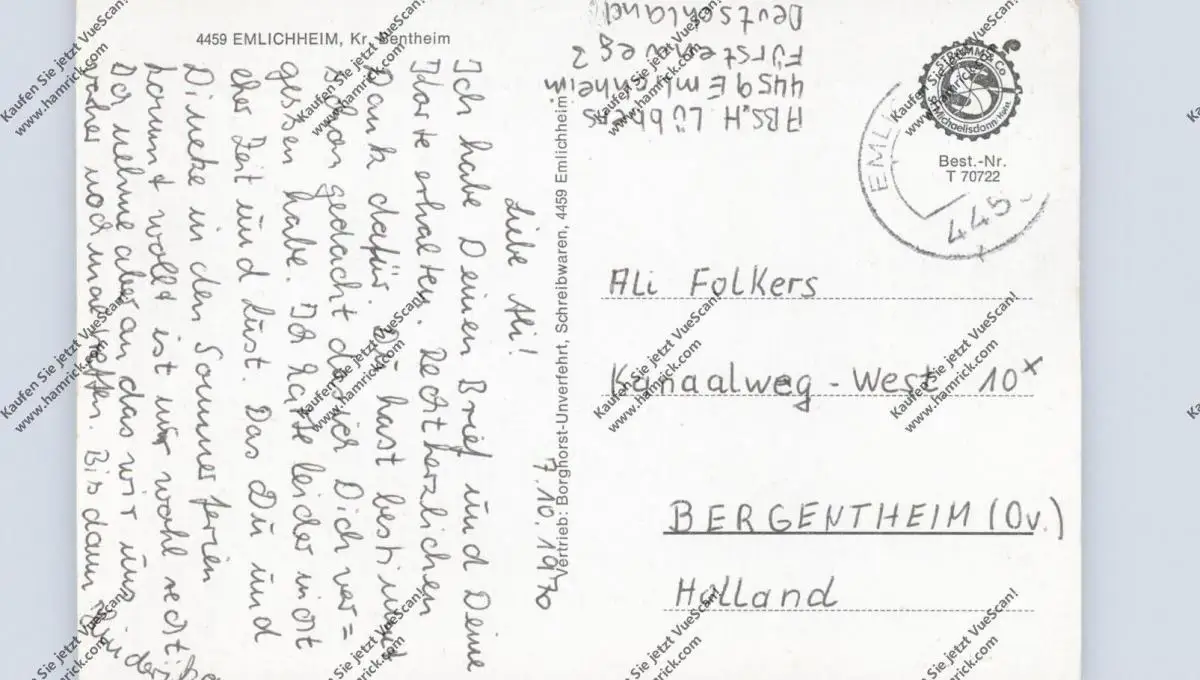 4459 EMLICHHEIM, Kr. Bentheim
7.10.1970
Liebe Ali!
Ich habe Deinen Brief und Deine
Karte erhalten. Recht herzlichen
Dank dafür. Du hast bestimmt
schon gedacht das ich Dich ver=
gessen habe. Ich hatte leider nicht
eher Zeit und Lust. Das Du und
Dineke in den Sommerferien
kommt wollt ist mir wohl recht.
Ich nehme aber an das wir uns
vorher noch mal treffen. Bis dann
Vertrieb: Borghorst-Unverfehrt, Schreibwaren, 4459 Emlichheim
Abs. H Lübbers
4459 Emlichheim
Fürstenweg 2
Deutschland
St. Michaelisdonn/Holst.
Best.-Nr.
T 70722
EMLI
445
Ali Folkers
Kanaalweg - West 10x
BERGENTHEIM (Ov.)
Holland
Kaufen Sie jetzt VueScan!
www.hamrick.com